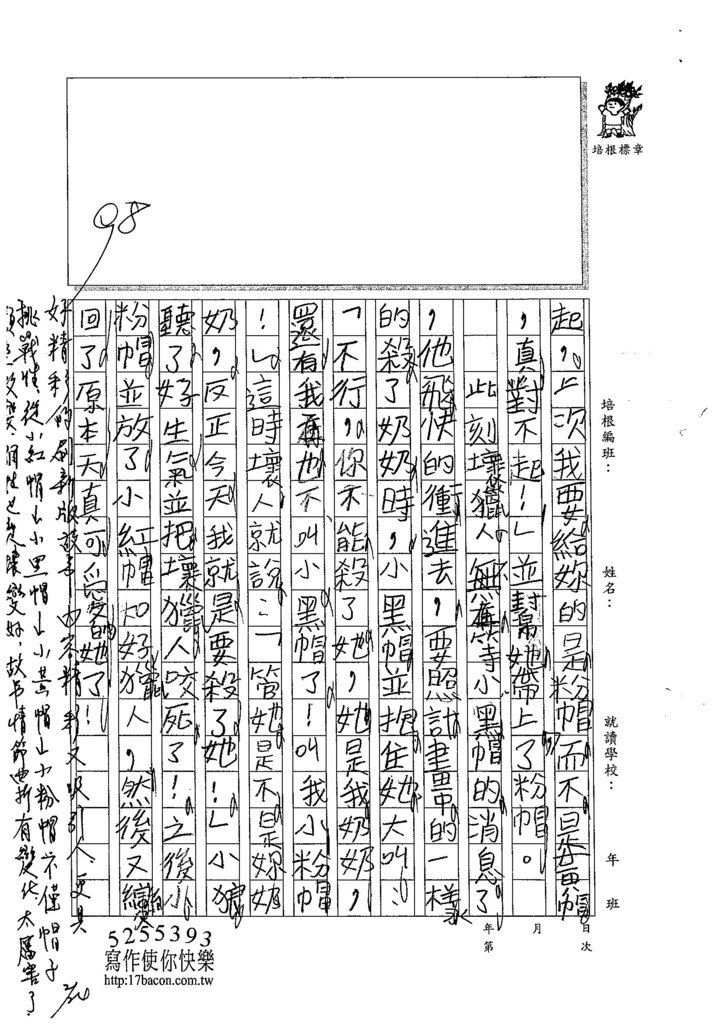 培根標章
培根編班：
姓名：
就讀學校：
年 班
年 月 日
第 次
98
起，上次我要給妳的是粉帽而不是黃帽
，真對不起！」並幫她帶上了粉帽。
此刻壞獵人無奈等小黑帽的消息了
，他飛快的衝進去，要照計畫中的一樣
的殺了奶奶時，小黑帽並抱住她大叫：
「不行，你不能殺了她，她是我奶奶，
還有我再也不叫小黑帽了！叫我小粉帽
！」這時壞人就說：「管她是不是妳奶
奶，反正今天我就是要殺了她！」小
聽了好生氣並把壞獵人咬死了！之後小
粉帽並放了小紅帽和好獵人，然後又變
回了原本天真可愛的她了！
好精彩的刷新版故事，內容精彩又吸引人，更具
挑戰性，從小紅帽→小黑帽→小黃帽→小粉帽，不僅帽子
個性也是隨變好，故事情節更新有變化，太厲害了
5255393
寫作使你快樂
http:17bacon.com.tw